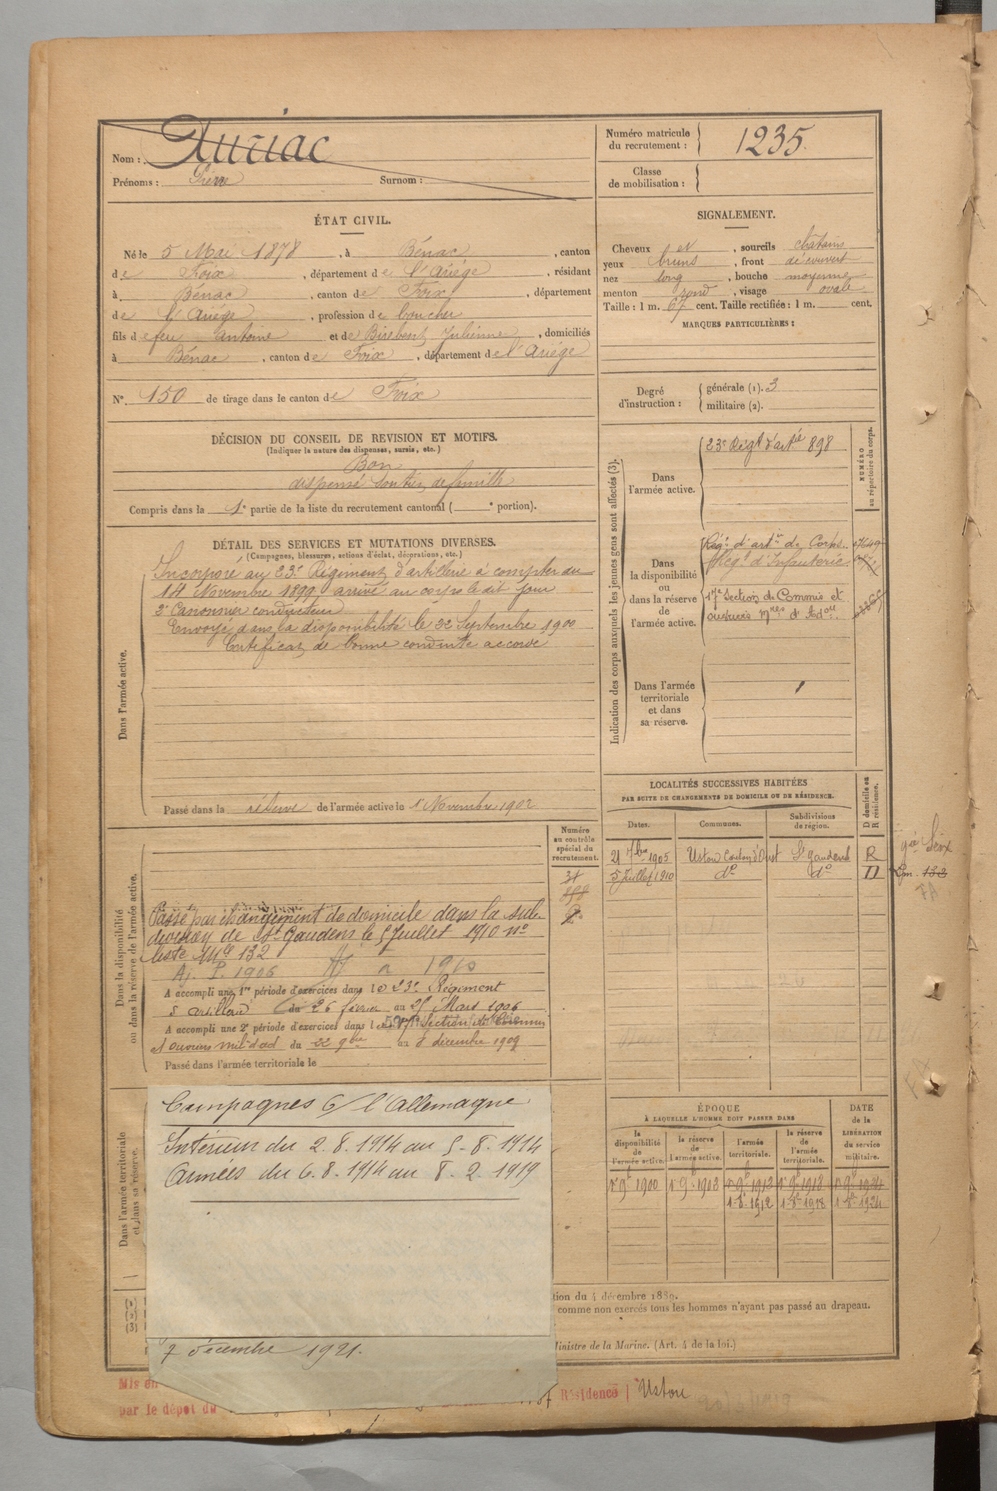 Nom : Auriac
Prénoms : Pierre Surnom :
Numéro matricule du recrutement : 1235.
Classe de mobilisation :
ÉTAT CIVIL.
Né le 5 Mai 1878, à Bénac, canton
de Foix, département de l'Ariége, résidant
à Bénac, canton de Foix, département
de l'Ariége, profession de boucher
fils de feu Antoine et de Birebent Julienne, domiciliés
à Bénac, canton de Foix, département de l'Ariége
N°. 150 de tirage dans le canton de Foix
SIGNALEMENT.
Cheveux et, sourcils châtains
yeux bruns, front découvert
nez long, bouche moyenne
menton rond, visage ovale
Taille : 1 m. 67 cent. Taille rectifiée : 1 m. cent.
MARQUES PARTICULIÈRES :
Degré d'instruction : générale (1). 3
militaire (2).
DÉCISION DU CONSEIL DE REVISION ET MOTIFS.
(Indiquer la nature des dispenses, sursis, etc.)
Bon
dispensé soutien de famille
Compris dans la 1e partie de la liste du recrutement cantonal ( e portion).
DÉTAIL DES SERVICES ET MUTATIONS DIVERSES.
(Campagnes, blessures, actions d'éclat, décorations, etc.)
Dans l'armée active.
Incorporé au 23e Régiment d'artillerie à compter du
14 Novembre 1899 arrivé au corps le dit jour
2e Canonnier conducteur
Envoyé dans la disponibilité le 22 Septembre 1900
Certificat de bonne conduite accordé
Passé dans la réserve de l'armée active le 1 Novembre 1902
Indication des corps auxquels les jeunes gens sont affectés (3).
NUMÉRO au répertoire du corps.
Dans l'armée active.
23e Régt d'artie 898
Dans la disponibilité ou dans la réserve de l'armée active.
Régt d'artie de Corps.
Régt d'Infanterie
17e Section de Commis et
ouvriers
Dans l'armée territoriale et dans sa réserve.
LOCALITÉS SUCCESSIVES HABITÉES
PAR SUITE DE CHANGEMENTS DE DOMICILE OU DE RÉSIDENCE.
Dates. Communes. Subdivisions de région. D domicile ou R résidence.
21 7bre 1905 Ustou Canton d'Oust St Gaudens R
5 juillet 1910 do do D
Numéro au contrôle spécial du recrutement.
Dans la disponibilité ou dans la réserve de l'armée active.
Passé par changement de domicile dans la sub-
division de St Gaudens le 5 Juillet 1910 no
liste Mle 132
Aj. P. 1906
1910
A accompli une 1re période d'exercices dans le 23e Régiment
d'artillerie du 26 février au 25 Mars 1906
A accompli une 2e période d'exercices dans la 17e Section de Commis
et ouvriers mil. d'ad du 22 9bre au 8 décembre 1909
Passé dans l'armée territoriale le
Dans l'armée territoriale et dans sa réserve.
Campagnes C/ l'Allemagne
Intérieur du 2.8.1914 au 5-8.1914
Armées du 6.8.1914 au 8.2.1919
7 décembre 1921.
ÉPOQUE
À LAQUELLE L'HOMME DOIT PASSER DANS
la disponibilité de l'armée active.
la réserve de l'armée active.
l'armée territoriale.
la réserve de l'armée territoriale.
DATE de la LIBÉRATION du service militaire.
1 9bre 1900
(1)
(2)
(3)
tion du 4 décembre 1889.
comme non exercés tous les hommes n'ayant pas passé au drapeau.
Ministre de la Marine. (Art. 4 de la loi.)
Mis en
par le dépôt du
Résidence Ustou